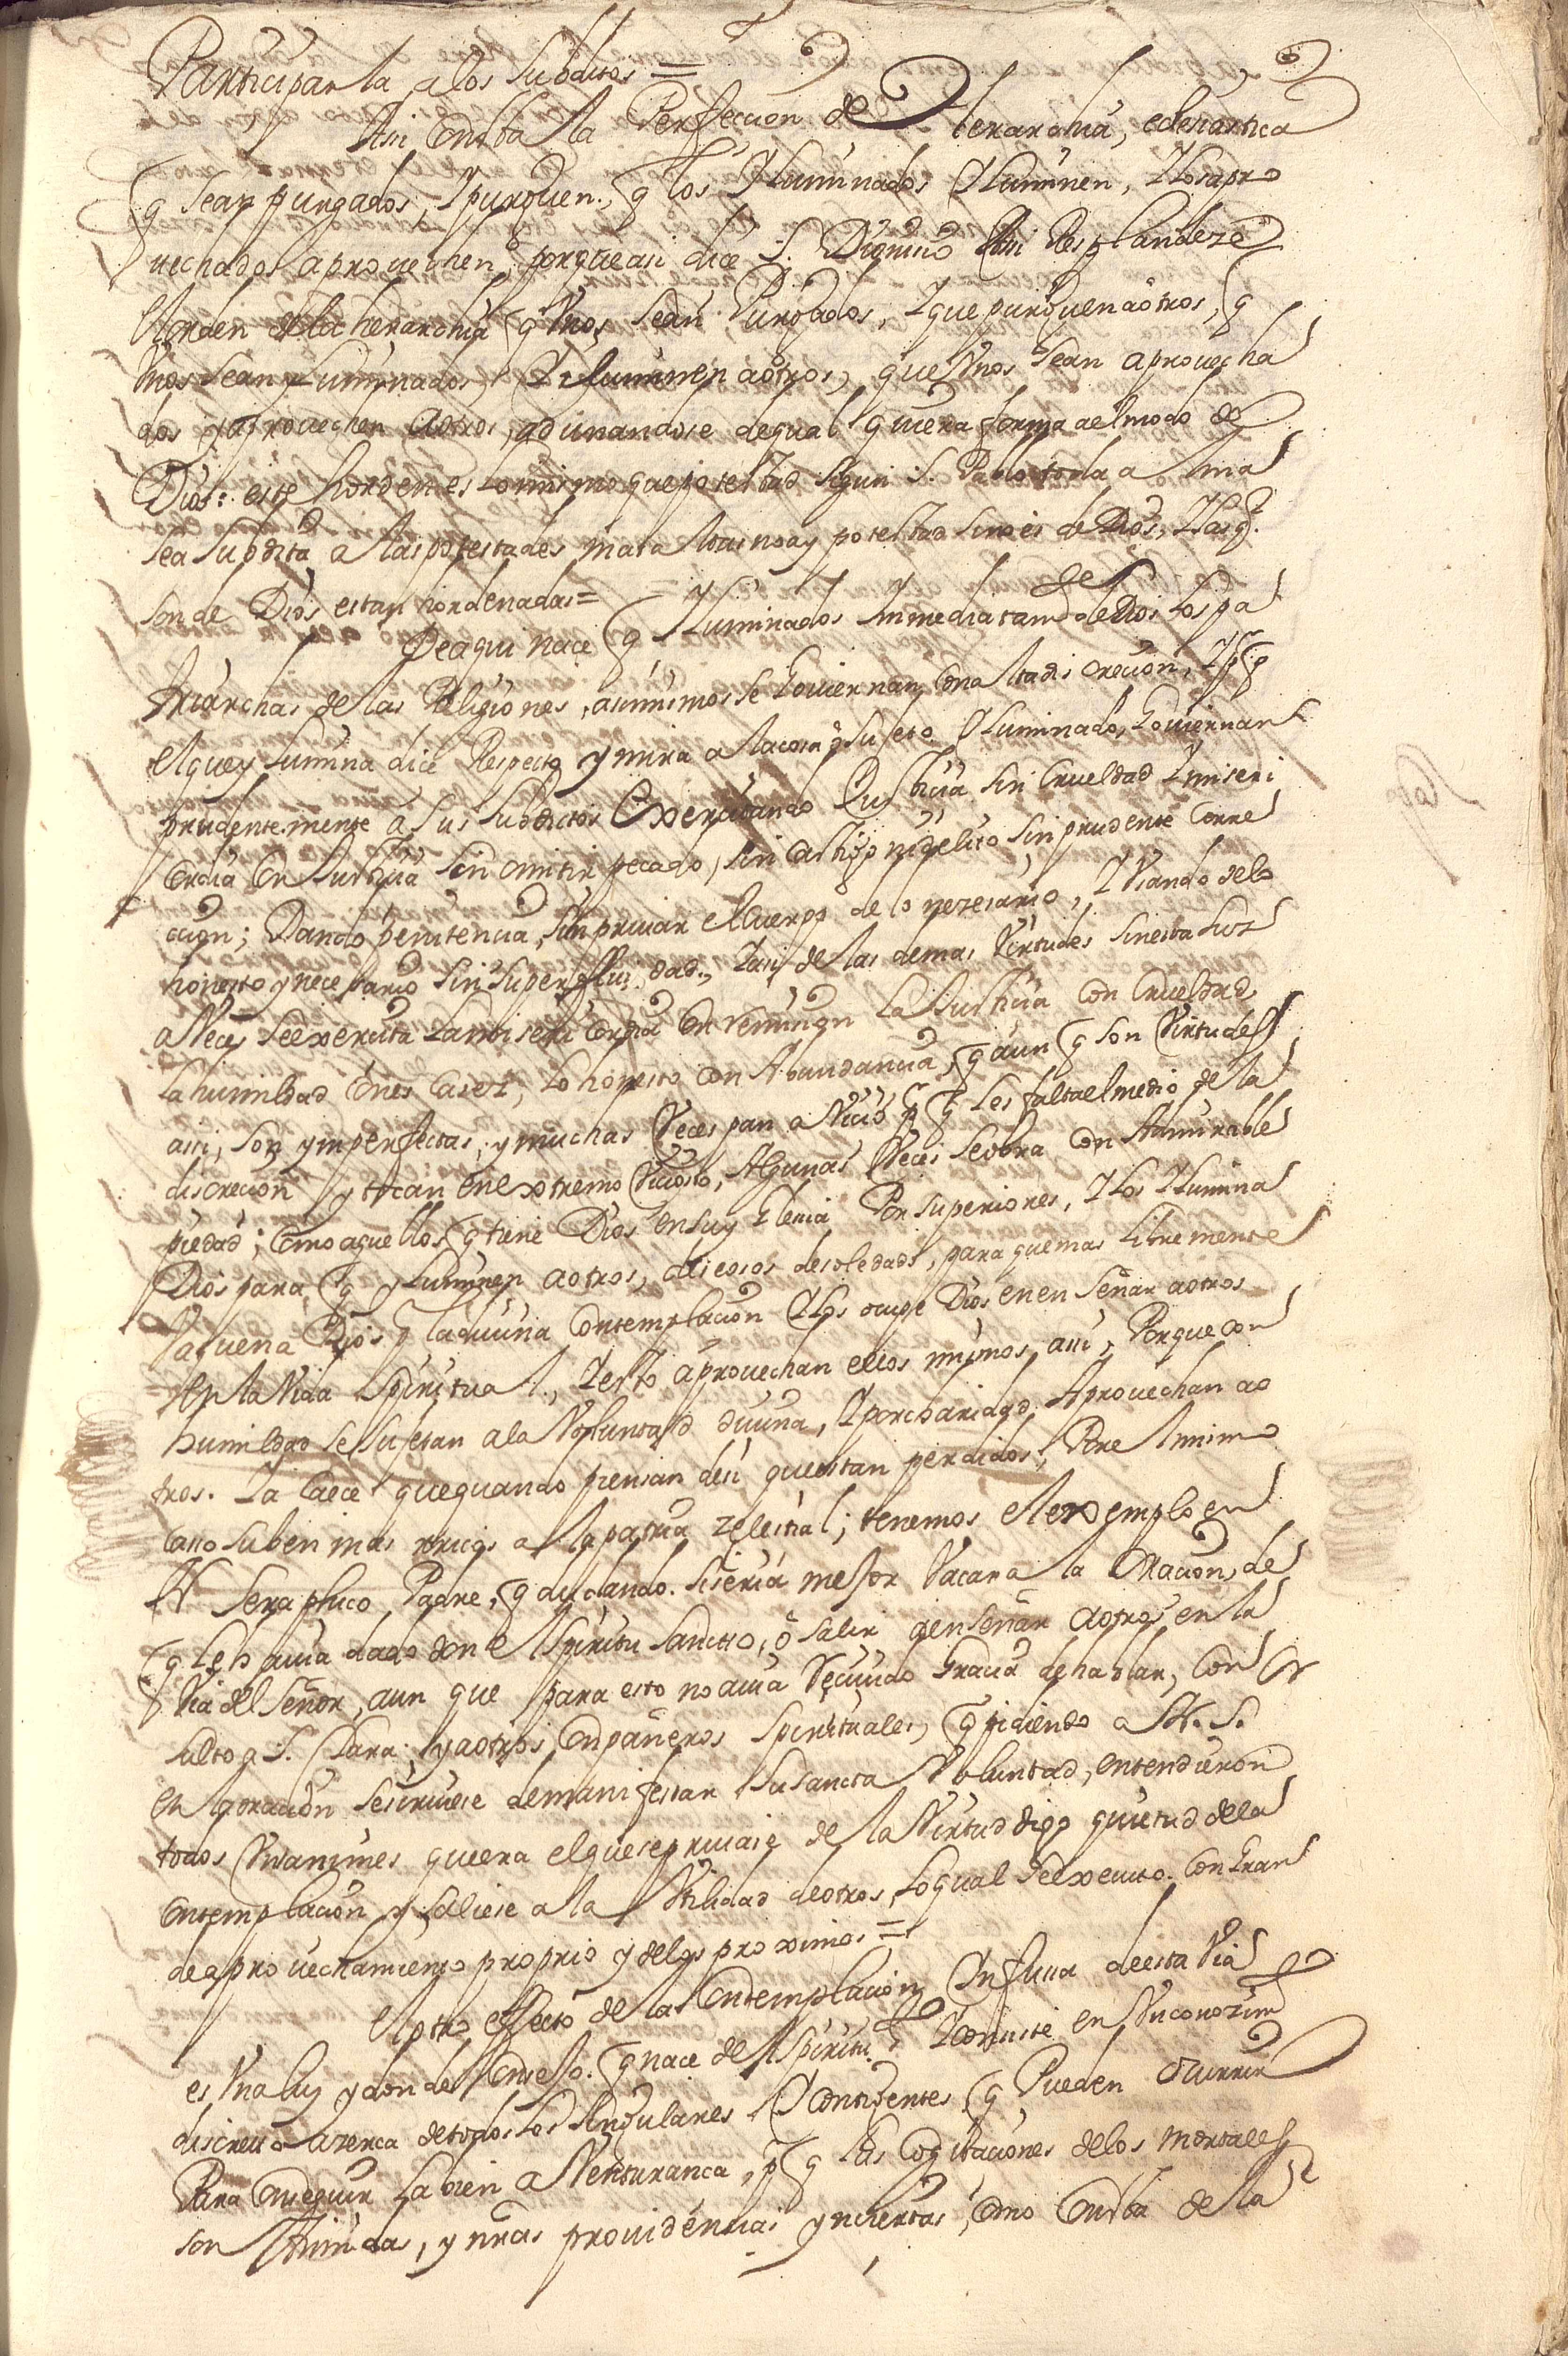 Participarla a los subditos =
Asi Consta la Perfeccion de Hierarchia, eclesiastica
q sean purgados, I purguen., q los Illuminados Illuminen, I los apro
uechados aprouechen, porque asi dice S. Dionisio Asi Resplandeze
el orden de la hierarchia q Unos sean Purgados, I que purguen a otros, q
Unos sean yluminados, I iluminen a otros, que Unos sean aprouecha
dos y aprouechen a otros, adunandose de qual quiera forma a el modo de
Dios: este horden es lo mismo que potestad segun S. Pablo toda alma
sea subdita a las potestades mas altas no ay potestad sino es de Dios, I las q.
son de Dios estan hordenadas =
De aqui nace q Iluminados Immediatamte de Dios los pa
triarchas de las Religiones, asimismos se Gouiernan, con alta discrecion, I pq
el que ylumina dice Respecto y mira a la cosa o sujeto Illuminado, Gouiernan
prudentemente a sus subditos Exercitando Justicia sin Crueldad I miseri
cordia con Justicia sin omitir pecado, sin castigo ni delicto sin prudente Corre
ccion; Dando penitencia, sin priuar el Cuerpo de lo nezesario, I Usando de lo
honesto y necesario sin superfluidad., I asi de las demas Virtudes sin esta luz
a Veces se exercita la misericordia con remision la Justicia con Crueldad,
la humildad con escasez, lo honesto con Abundancia, q aun q son Virtudes
assi, son ymperfectas, y muchas Veces pasan a Vicio pq les falta el medio de la
discrecion y tocan en extremo Vicioso, Algunas Veces se obra con Admirable
piedad; como aquellos q tiene Dios en su yglesia Por superiores, I los Ilumina
Dios para q yluminen a otros, deseosos de soledad, para que mas libremente
Vaquen a Dios q la diuina Contemplacion I los ocupe Dios en enseñar a otros
en la Vida Spiritual., I esto aprouechan ellos mismos, assi, Porque con
humildad se sujetan a la Voluntad diuina, I por charidad Aprouechan a o
tros. I acaece que quando piensan de si que estan perdidos, Por el mismo
caso suben mas ricos a la patria zelestial; tenemos el exemplo en
N Seraphico Padre, q dudando. si seria mejor Vacar a la Oracion de
q le hauia dado don el Spiritu Sancto, o salir a enseñar a otros en la
Via del Señor, aun que para esto no auia Reciuido Gracia de hablar, Con
sulto a S. Clara y a otros compañeros Spirituales, q pidiendo a N. S.
en oracion se siruiese de manifestar su Sancta Voluntad, entendieron
todos Unanimes que era el que se priuase de la Virtud digo quietud de la
contemplacion y saliese a la Utilidad de otros, lo qual se executo. Con Gran
de aprouechamiento proprio y de los proximos =
El otro effecto de la Contemplacion Infusa de esta Via
es Una luz y don de Consejo. q nace del Spiritu Sto I consiste en Un conozimto
discreto azerca de todos los singulares I Contingentes q Pueden ocurrir
Para Conseguir la bien a Venturanca, pq las Cogitaciones de los mortales
son timidas, y nras prouidencias ynciertas, como Consta de la